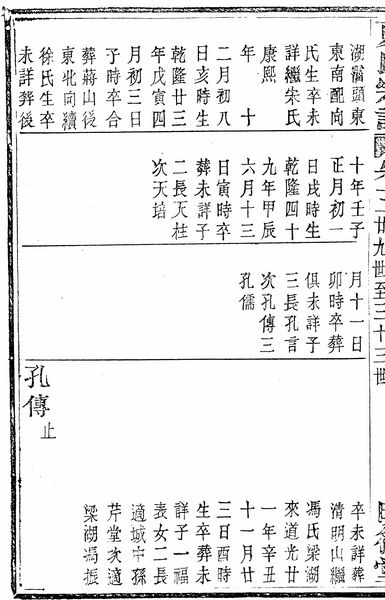 氏宗譜 卷二廿九世至三十三世 堂
湖頭東
東南配向
氏生卒未
詳繼朱氏
康熙
年 十
二月初八
日亥時生
乾隆廿三
年戊寅四
月初三日
子時卒合
葬蔣山後
東北向續
徐氏生卒
未詳葬後
十年壬子
正月初一
日戌時生
乾隆四十
九年甲辰
六月十三
日寅時卒
葬未詳子
二長天柱
次天培
月十一日
卯時卒葬
俱未詳子
三長孔言
次孔傳三
孔儒
孔傳止
卒未詳葬
清明山繼
馮氏梁湖
來道光廿
一年辛丑
十一月廿
三日酉時
生卒葬未
詳子一福
表女二長
適城中孫
芹堂次適
梁湖馮振